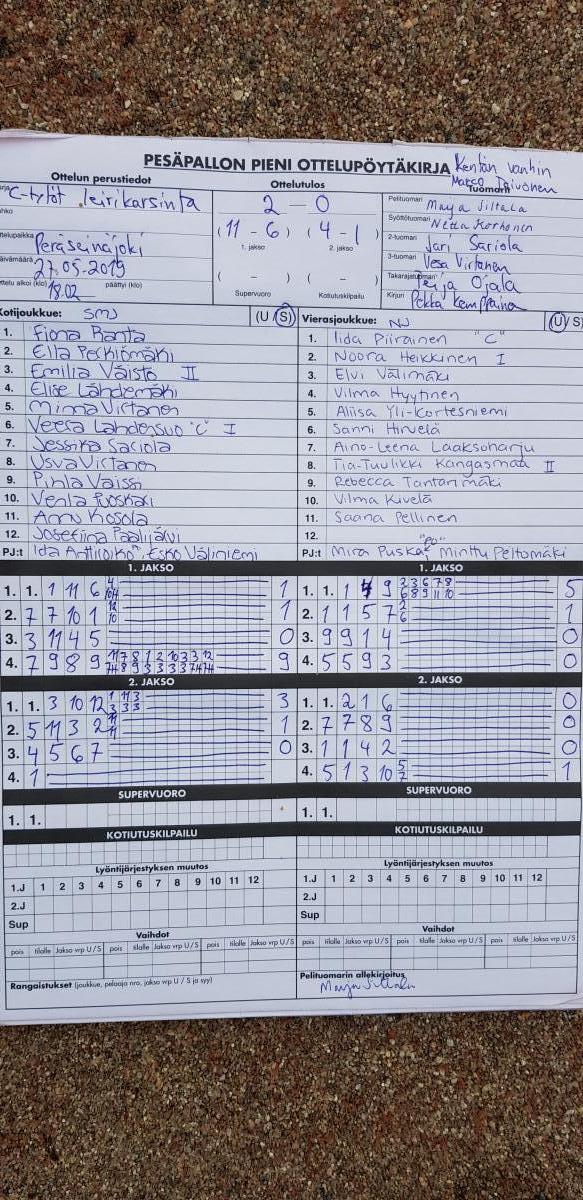 PESÄPALLON PIENI OTTELUPÖYTÄKIRJA
Kentän vanhin
Marco Toivonen
Ottelun perustiedot
Ottelutulos
Tuomarit
C-tytöt leirikarsinta
Peräseinäjoki
Päivämäärä 27.05.2019
Ottelu alkoi (klo) 18.02 päättyi (klo)
2 – 0
( 11 – 6 ) ( 4 – 1 )
1. jakso 2. jakso
( – ) ( – )
Supervuoro Kotiutuskilpailu
Pelituomari Marja Siltala
Syöttötuomari Netta Korhonen
2-tuomari Jari Sariola
3-tuomari Vesa Virtanen
Takarajatuomari Teija Ojala
Kirjuri Pekka Kemppaina
Kotijoukkue: SMJ (U / S)
1. Fiona Ranta
2. Ella Perkiömäki
3. Emilia Väistö II
4. Elise Lähdemäki
5. Minna Virtanen
6. Veera Lahdensuo "C" I
7. Jessika Sariola
8. Usva Virtanen
9. Pihla Vaissi
10. Venla Puoskari
11. Annu Kosola
12. Josefiina Paalijärvi
PJ:t Esko Väliniemi
Vierasjoukkue: NJ (U / S)
1. Iida Piirainen "C"
2. Noora Heikkinen I
3. Elvi Välimäki
4. Vilma Hyytinen
5. Aliisa Yli-Kortesniemi
6. Sanni Hirvelä
7. Aino-Leena Laaksoharju
8. Tia-Tuulikki Kangasmaa II
9. Rebecca Tantarimäki
10. Vilma Kivelä
11. Saana Pellinen
12.
"PO"
PJ:t Mira Puska, Minttu Peltomäki
1. JAKSO
1. 1. 1 11 6 1
2. 7 7 10 1 1
3. 3 11 4 5 0
4. 7 9 8 9 9
2. JAKSO
1. 1. 3 10 12 3
2. 5 11 3 2 1
3. 4 5 6 7 0
4. 1
SUPERVUORO
1. 1.
KOTIUTUSKILPAILU
1. JAKSO
1. 1. 1 9 5
2. 1 1 5 7 1
3. 9 9 1 4 0
4. 5 5 9 3 0
2. JAKSO
1. 1. 2 1 6 0
2. 7 7 8 9 0
3. 1 1 4 2 0
4. 5 1 3 10 1
SUPERVUORO
1. 1.
KOTIUTUSKILPAILU
Lyöntijärjestyksen muutos
1.J 1 2 3 4 5 6 7 8 9 10 11 12
2.J
Sup
Vaihdot
pois tilalle Jakso vrp U / S pois tilalle Jakso vrp U / S pois tilalle Jakso vrp U / S
Rangaistukset (joukkue, pelaaja nro, jakso vrp U / S ja syy)
Lyöntijärjestyksen muutos
1.J 1 2 3 4 5 6 7 8 9 10 11 12
2.J
Sup
Vaihdot
pois tilalle Jakso vrp U / S pois tilalle Jakso vrp U / S pois tilalle Jakso vrp U / S
Pelituomarin allekirjoitus
Marja Siltala